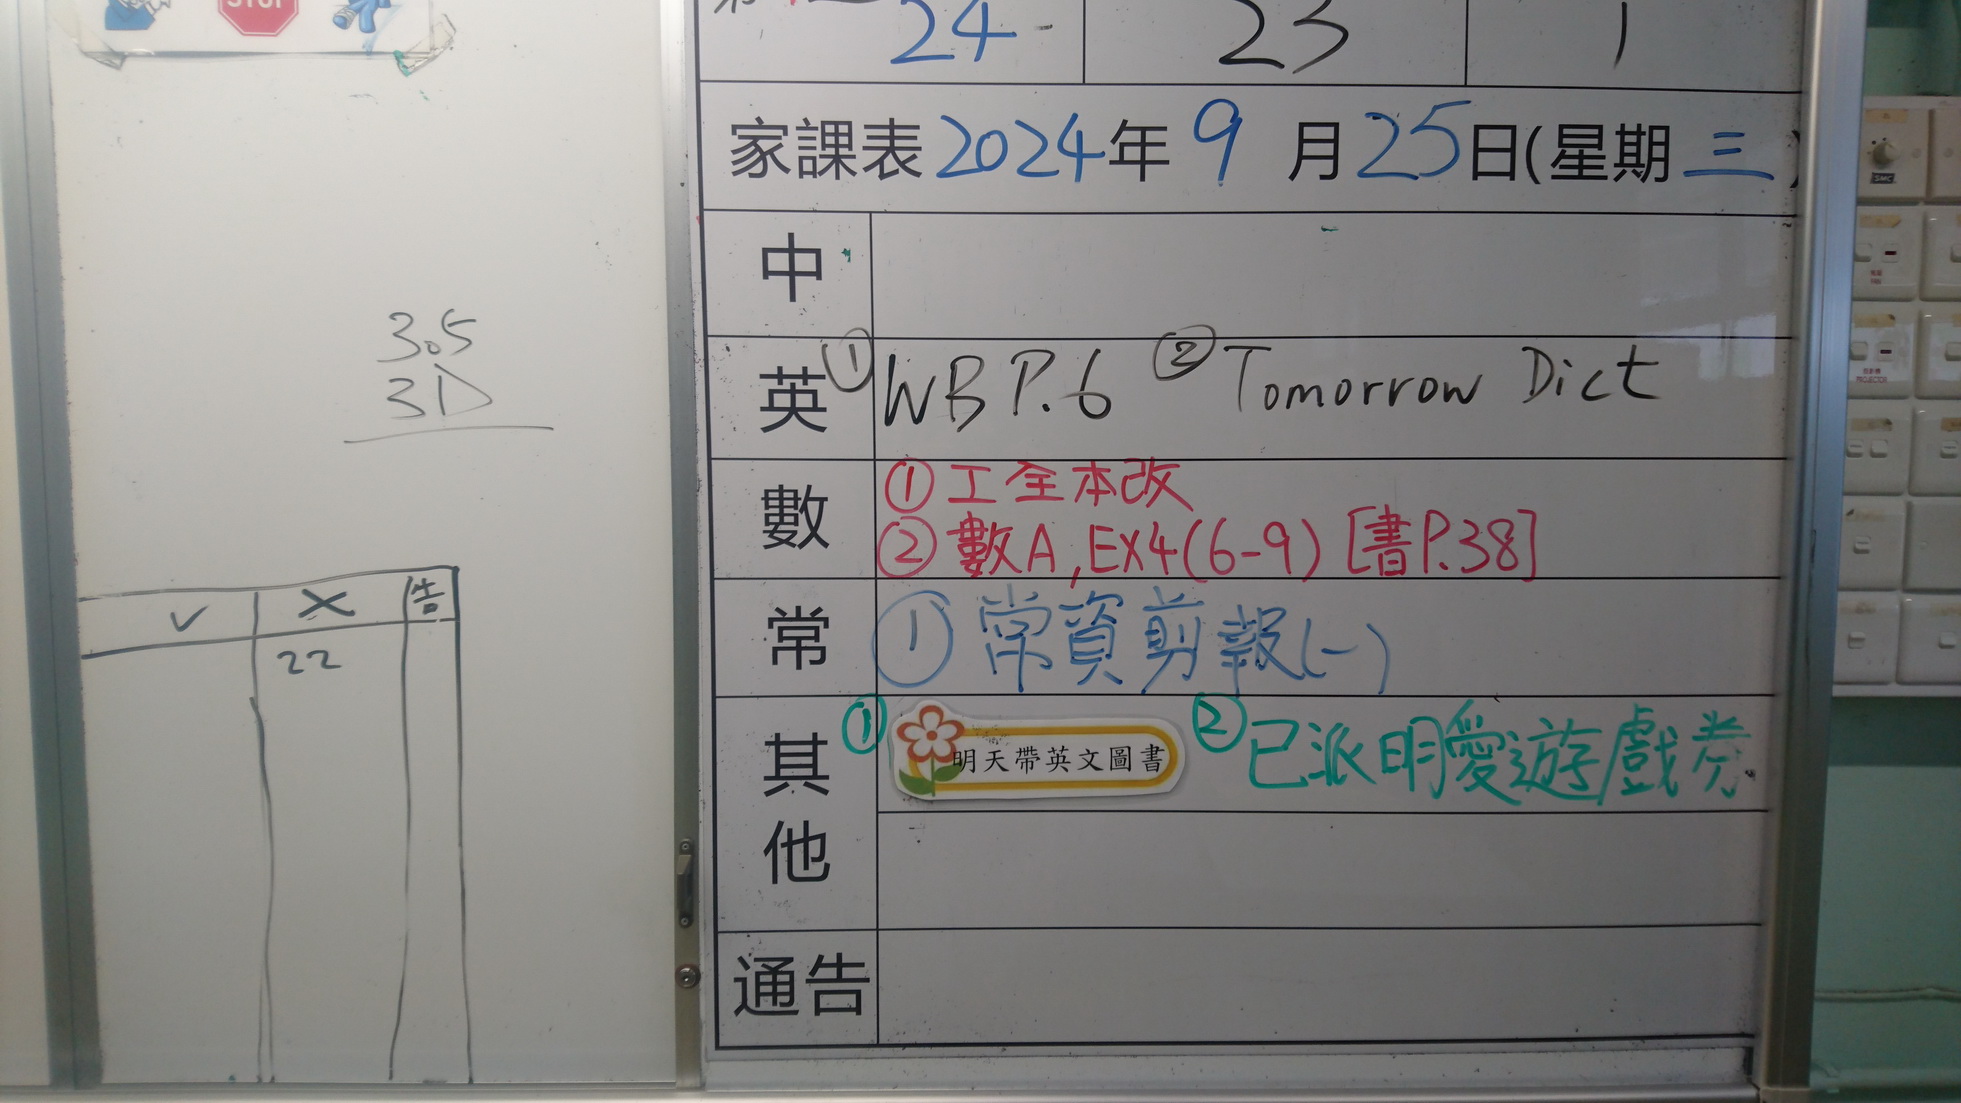 STOP
3.5
3D
✓ × 告
22
24 23 1
家課表2024年9月25日(星期三)
中
英 ①WB P.6 ②Tomorrow Dict
數 ①工全本改
②數A,EX4(6-9)[書P.38]
常 ①常資剪報(一)
其他 ①明天帶英文圖書 ②已派明愛遊戲券
通告